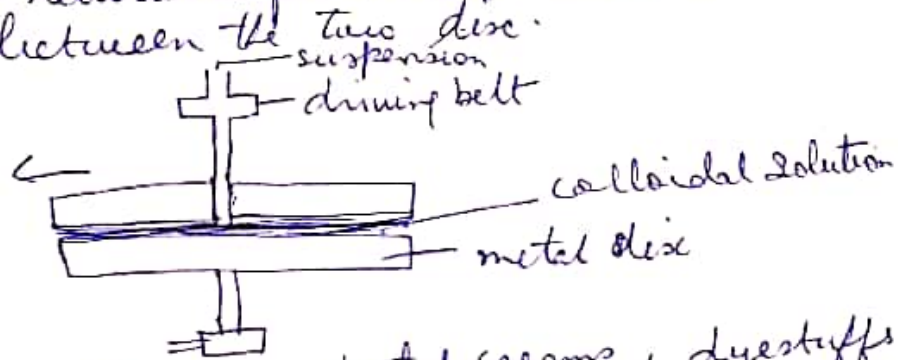 between the two disc.
suspension
driving belt
colloidal solution
metal disc
dyestuffs